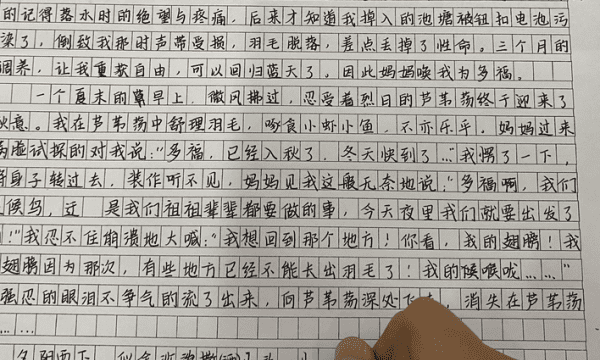 的记得落水时的绝望与疼痛，后来才知道我掉入的池塘被钮扣电池污
染了，倒致我那时声带受损，羽毛脱落，差点丢掉了性命。三个月的
调养，让我重获自由，可以回归蓝天了，因此妈妈唤我为多福。
一个夏末的早上，微风拂过，忍受着烈日的芦苇荡终于迎来了
秋意。我在芦苇荡中舒理羽毛，啄食小虾小鱼，不亦乐乎，妈妈过来
试探的对我说："多福，已经入秋了，冬天快到了…"我愣了一下，
将身子转过去，装作听不见，妈妈见我这般无奈地说："多福啊，我们
候鸟，迁 是我们祖祖辈辈都要做的事，今天夜里我们就要出发了
！"我忍不住崩溃地大喊："我想回到那个地方！你看，我的翅膀！我
翅膀因为那次，有些地方已经不能长出羽毛了！我的喉咙……"
强忍的眼泪不争气的流了出来，向芦苇荡深处飞去，消失在芦苇荡
……
夕阳西下，